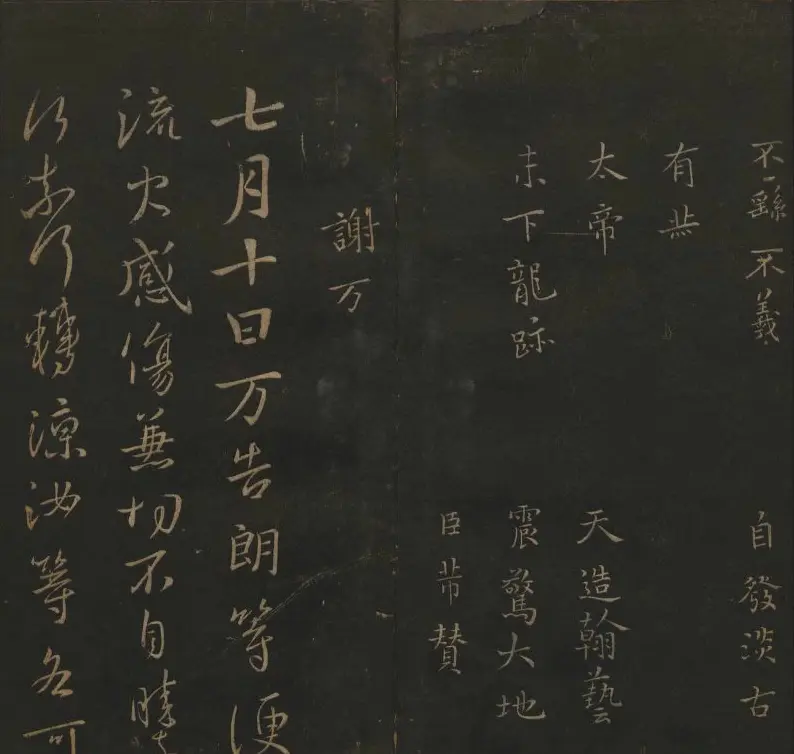 不繇不羲 自發淡古
有
太帝 天造翰藝
下龍跡 震驚大地
臣芾賛
謝万
七月十日万告朗等便
流火感傷兼切不自勝
轉涼汝等各可